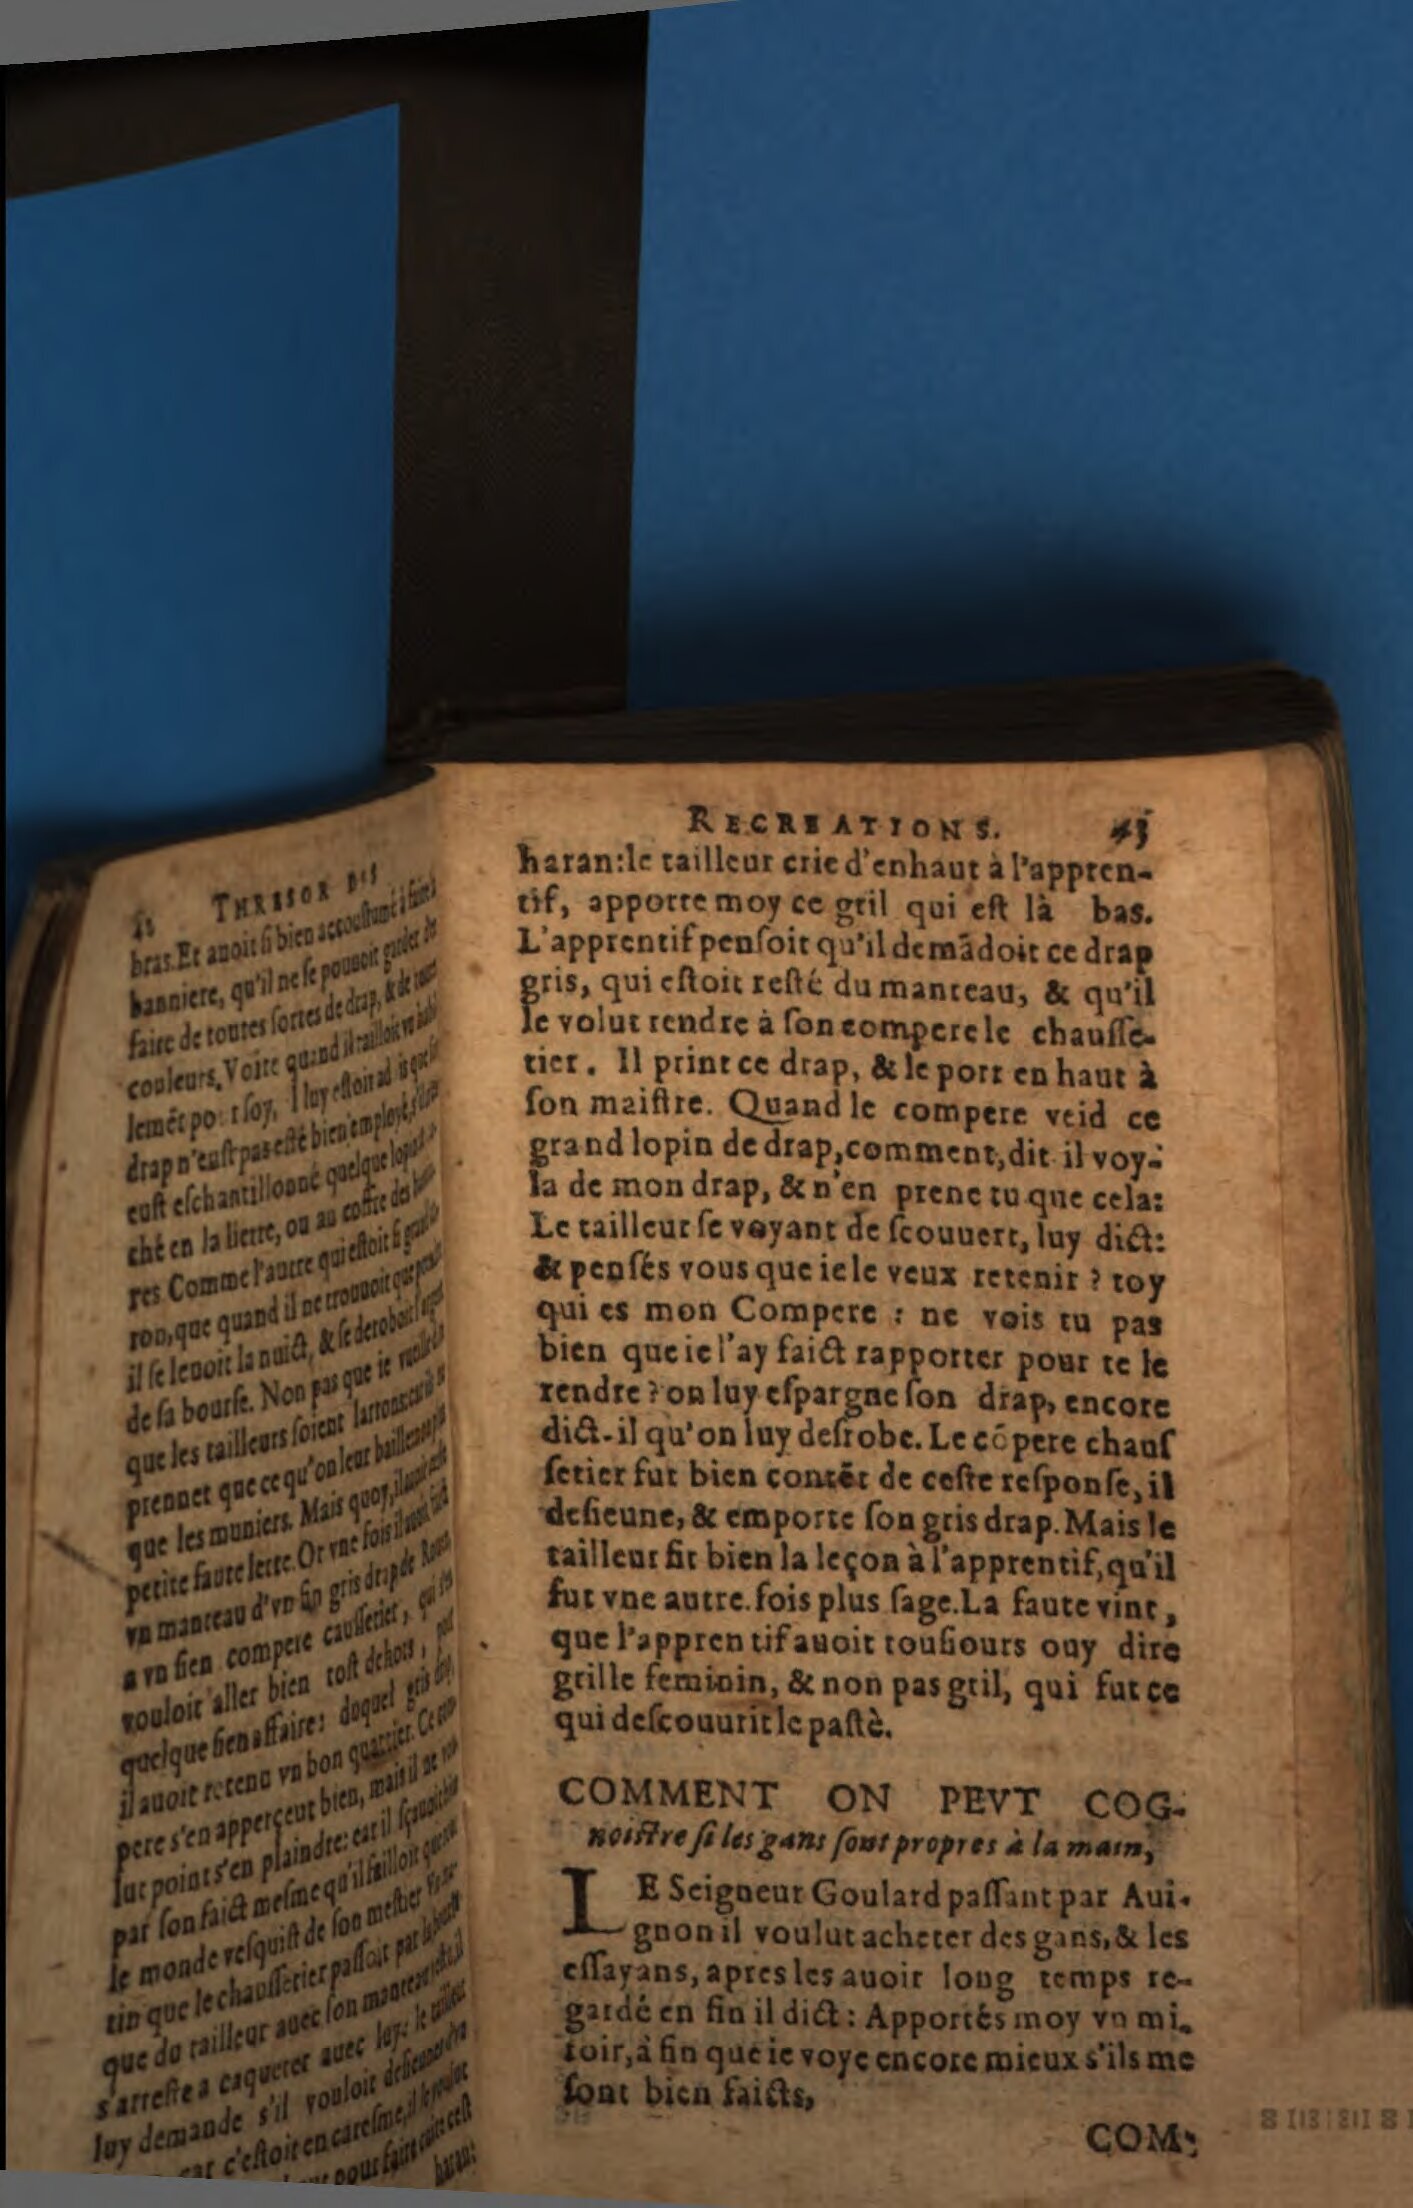 THRESOR DES
bras. Et auoit si bien accoustumé à faire la
banniere, qu'il ne se pouuoit garder de
faire de toutes sortes de drap, & de toutes
couleurs. Voire quand il tailloit vn habil
lemēt pour soy, il luy estoit ad is que
drap n'eust pas esté bien employé, s'il n'en
eust eschantillonné quelque lopin
ché en la liette, ou au coffre des
res. Comme l'autre qui estoit si grand
ron, que quand il ne trouuoit que prendre
il se leuoit la nuict, & se deroboit l'argent
de sa bourse. Non pas que ie vueille
que les tailleurs soient larrons: car
prennet que ce qu'on leur baille
que les muniers. Mais quoy,
petite faute lette. Or vne fois il
vn manteau d'vn fin gris drap de Rouen
a vn sien compere caussetier, qui
vouloit aller bien tost dehors, pour
quelque sien affaire: duquel gris drap
il auoit retenu vn bon quartier. Ce com
pere s'en apperçeut bien, mais il ne vou
lut point s'en plaindre: car il sçauoit bien
par son faict mesme qu'il failloit que
le monde vesquist de son mestier.
tin que le chaussetier passoit par la
que du tailleur auec son manteau
s'arreste a caqueter auec luy: le tailleur
luy demande s'il vouloit desieuner
car c'estoit en caresme, il le voulut
pour faire cuire cest
haran:
RECREATIONS. 43
haran: le tailleur crie d'enhaut à l'appren-
tif, apporte moy ce gril qui est là bas.
L'apprentif pensoit qu'il demādoit ce drap
gris, qui estoit resté du manteau, & qu'il
le volut rendre à son compere le chausse-
tier. Il print ce drap, & le port en haut à
son maistre. Quand le compere veid ce
grand lopin de drap, comment, dit il voy-
la de mon drap, & n'en prene tu que cela:
Le tailleur se voyant de scouuert, luy dict:
& pensés vous que ie le veux retenir ? toy
qui es mon Compere : ne vois tu pas
bien que ie l'ay faict rapporter pour te le
rendre ? on luy espargne son drap, encore
dict-il qu'on luy desrobe. Le cōpere chaus
setier fut bien contēt de ceste response, il
desieune, & emporte son gris drap. Mais le
tailleur fit bien la leçon à l'apprentif, qu'il
fut vne autre. fois plus sage. La faute vint,
que l'appren tif auoit tousiours ouy dire
grille feminin, & non pas gril, qui fut ce
qui descouurit le pastè.
COMMENT ON PEVT COG-
noistre si les gans sont propres à la main,
LE Seigneur Goulard passant par Aui-
gnon il voulut acheter des gans, & les
essayans, apres les auoir long temps re-
gardé en fin il dict: Apportés moy vn mi-
roir, à fin que ie voye encore mieux s'ils me
sont bien faicts,
COM: